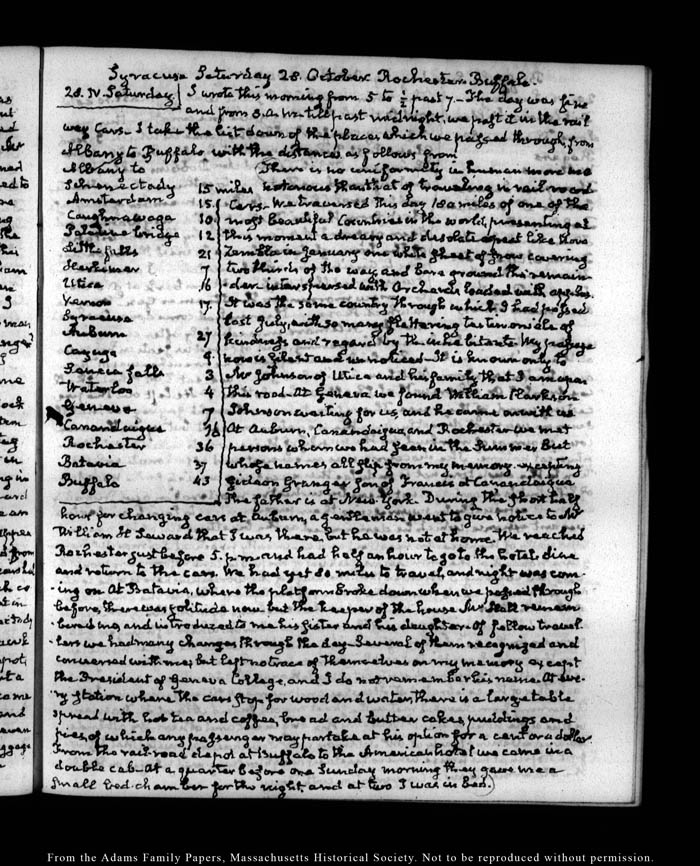 Syracuse Saturday 28. October. Rochester. Buffalo.
28. IV. Saturday
I wrote this morning from 5 to ½ past 7 – The day was fine
and from 8. A.M. till past midnight, we past it in the rail
way cars – I take the list down of the places which we passed through, from
Albany to Buffalo with the distances as follows from
Albany to
Schenectady 15 miles
Amsterdam 15.
Caughnawaga 10
Palatine bridge 12
Little falls 21
Herkimer 7
Utica 16
Vernon 17.
Syracuse
Auburn 27
Cayuga 9.
Seneca falls 3
Waterloo 4
Geneva 7
Canandaigua
Rochester 36
Batavia 37
Buffalo 43
There is no uniformity in human move
notorious than that of traveling in rail-road
Cars. We traversed this day 180 miles of one of the
most beautiful Countries in the world, presenting at
this moment a dreary and desolate aspect like Nova
Zembla in January one white sheet of snow covering
two thirds of the way, and bare ground the remain-
der interspersed with Orchards loaded with apples.
It was the same country through which I had passed
last July, with so many flattering testimonials of
kindness and regard by the inhabitants. My passage
now is silent and unnoticed – It is known only to
Mr Johnson of Utica and his family that I am upon
this road – At Geneva we found William Clarkson
Johnson waiting for us, and he came on with us
At Auburn, Canandaigua and Rochester we met
persons whom we had seen in the Summer but
whose names all slip from my memory excepting
Gideon Granger son of Francis at Canandaigua
The father is at New-York. During the short half
hour for changing cars at Auburn, a gentleman went to give notice to Mr
William H. Seward that I was there, but he was not at home. We reached
Rochester just before 5. p.m. and had half an hour to go to the hotel, dine
and return to the cars. We had yet 80 miles to travel, and night was com-
ing on At Batavia, where the platform broke down when we passed through
before, there was solitude now but the keeper of the house Mr Hall remem
bered me, and introduced to me his sister and his daughter. Of fellow travel-
lers we had many changes through the day – Several of them recognized and
conversed with me; but left no trace of themselves on my memory except
the President of Geneva College, and I do not remember his name. At eve-
ry station where the cars stop for wood and water there is a large table
spread with hot tea and coffee, bread and butter cakes, puddings and
pies, of which any passenger may partake at his option for a cent or a dollar.
From the rail-road depot at Buffalo to the American hotel we came in a
double cab – At a quarter before one Sunday morning they gave me a
small bed-chamber for the night, and at two I was in bed.
From the Adams Family Papers, Massachusetts Historical Society. Not to be reproduced without permission.